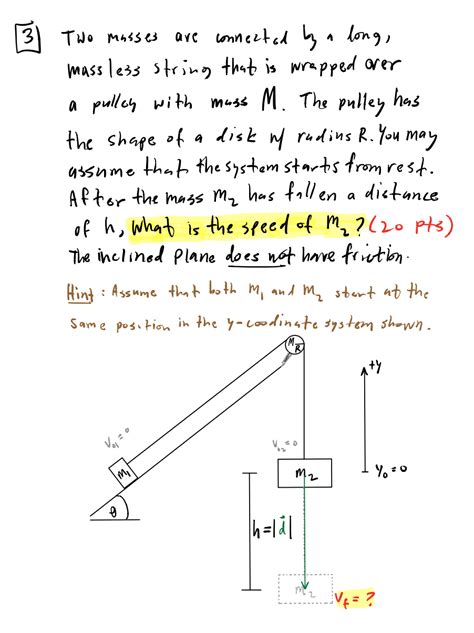 3 Two masses are connected by a long,
massless string that is wrapped over
a pulley with mass M. The pulley has
the shape of a disk w/ radius R. You may
assume that the system starts from rest.
After the mass M₂ has fallen a distance
of h, what is the speed of M₂? (20 pts)
The inclined plane does not have friction.
Hint: Assume that both M₁ and M₂ start at the
same position in the y-coodinate system shown.
M
R
+y
V₀₁=0
V₀₂=0
M₁
M₂
y₀=0
θ
h=|d⃗|
M₂
V_f=?